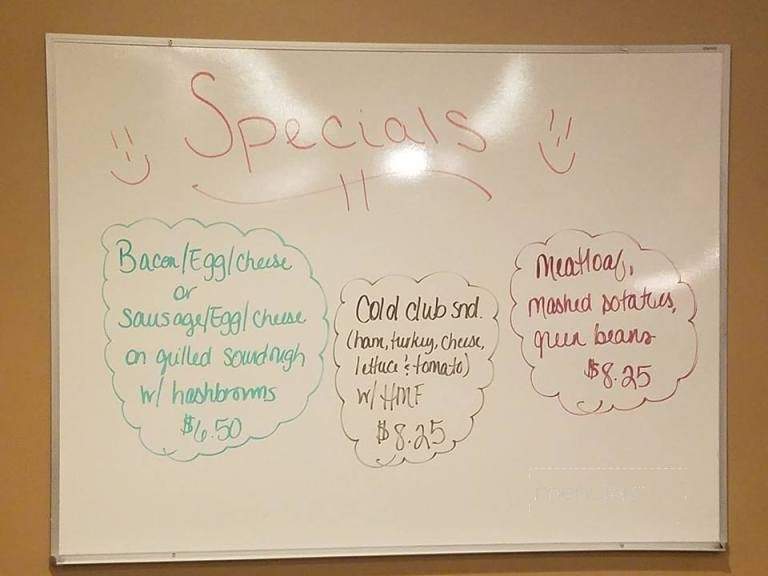 Specials
Bacon/Egg/cheese
or
Sausage/Egg/cheese
on grilled sourdough
w/ hashbrowns
$6.50
Cold club snd.
(ham, turkey, cheese,
lettuce & tomato)
w/ HMF
$8.25
Meatloaf,
mashed potatoes,
green beans
$8.25